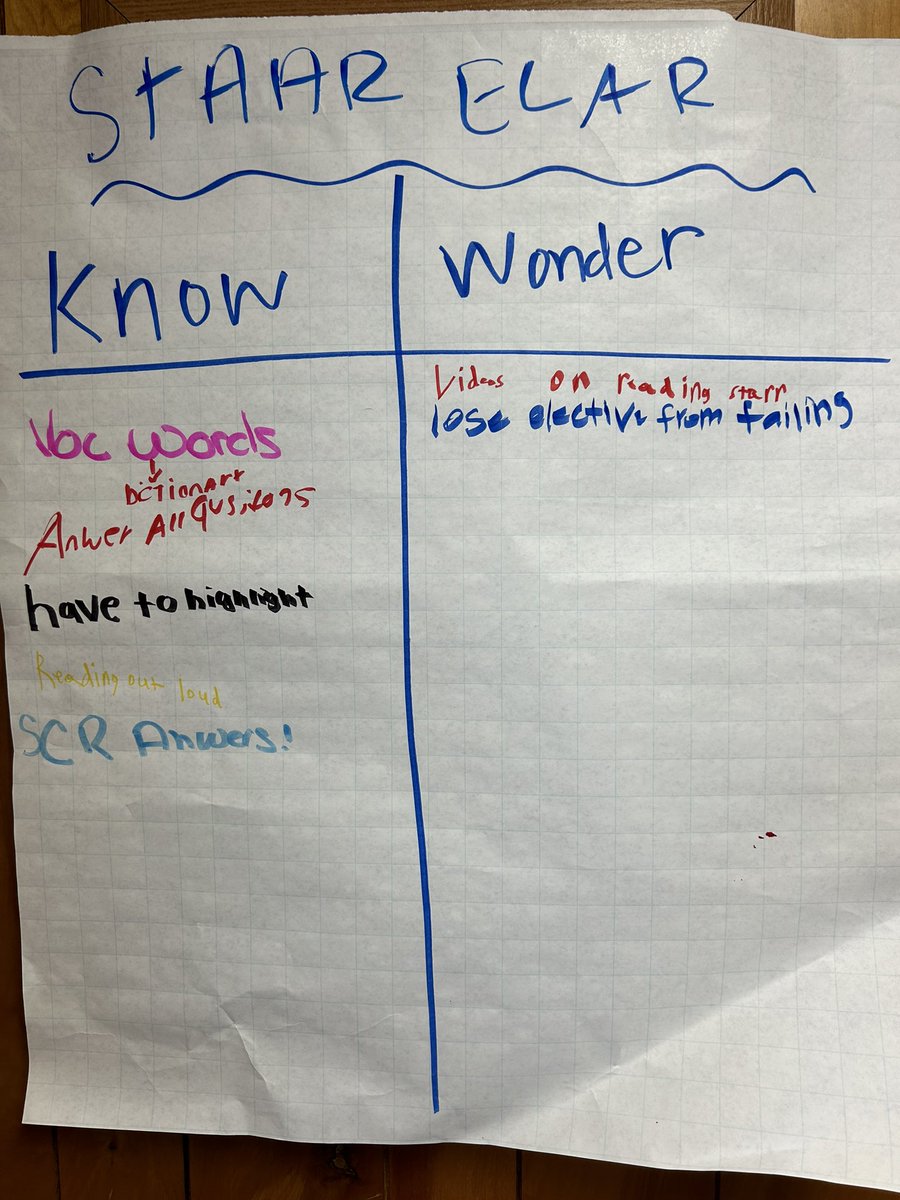 STAAR ELAR
Know
Wonder
Voc Words
DICTIONARY
Anwer All Qusitons
have to highlight
Reading out loud
SCR Anwers!
Videos on reading starr
lose elective from failing